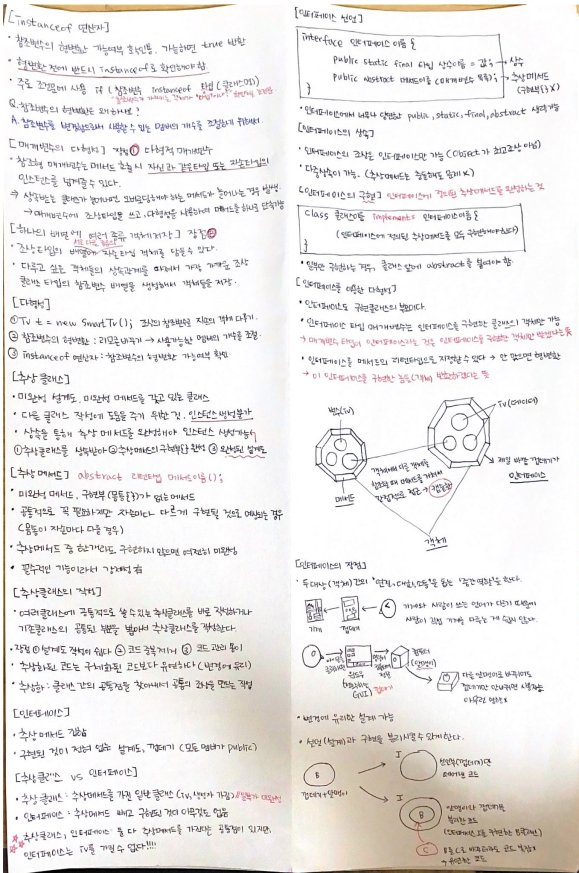 [instanceof 연산자]
• 참조변수의 형변환 가능여부 확인용. 가능하면 true 반환
• 형변환 전에 반드시 instanceof로 확인해야 함
• 주로 조건문에 사용 if (참조변수 instanceof 타입(클래스명))
Q. 참조변수의 형변환은 왜 하나요?
A. 참조변수를 변경함으로써 사용할 수 있는 멤버의 개수를 조절하기 위해서.
[매개변수의 다형성] 장점① 다형적 매개변수
• 참조형 매개변수는 메서드 호출시 자신과 같은타입 또는 자손타입의
인스턴스를 넘겨줄수 있다.
→ 매개변수에 조상타입을 쓰고, 다형성을 사용하여 메서드를 하나로 단축가능
[하나의 배열에 여러 종류 객체저장] 장점②
• 조상타입의 배열에 자손들의 객체를 담을수 있다.
• 다루고 싶은 객체들의 상속관계를 따져서 가장 가까운 조상
클래스 타입의 참조변수 배열을 생성해서 객체들을 저장.
[다형성]
① Tv t = new SmartTv(); 조상의 참조변수로 자손의 객체 다루기.
② 참조변수의 형변환 : 리모콘 바꾸기 → 사용가능한 멤버의 개수를 조절.
③ instanceof 연산자 : 참조변수의 형변환 가능여부 확인
[추상 클래스]
• 미완성 설계도, 미완성 메서드를 갖고 있는 클래스
• 다른 클래스 작성에 도움을 주기 위한 것. 인스턴스 생성불가
• 상속을 통해 추상 메서드를 완성해야 인스턴스 생성가능
① 추상클래스를 상속받아 ② 추상메서드의 구현부{} 완성 ③ 완성된 설계도
[추상 메서드] abstract 리턴타입 메서드이름();
• 미완성 메서드, 구현부(몸통{})가 없는 메서드
• 공통적으로 꼭 필요하지만 자손마다 다르게 구현될 것으로 예상되는 경우
(몸통이 자손마다 다를 경우)
• 추상메서드 중 하나라도 구현하지 않으면 여전히 미완성
• 필수적인 기능이라서 강제성 有
[추상클래스의 작성]
• 여러클래스에 공통적으로 쓸 수 있는 추상클래스를 바로 작성하거나
기존클래스의 공통된 부분을 뽑아서 추상클래스를 작성한다.
• 장점 ① 설계도 작성이 쉽다 ② 코드 중복제거 ③ 코드 관리 용이
• 추상화된 코드는 구체화된 코드보다 유연하다 (변경에 유리)
• 추상화 : 클래스 간의 공통점을 찾아내서 공통의 조상을 만드는 작업
[인터페이스]
• 추상 메서드 집합
• 구현된 것이 전혀 없는 설계도, 껍데기 (모든 멤버가 public)
[추상클래스 vs 인터페이스]
• 추상 클래스 : 추상메서드를 가진 일반 클래스 (iv, 생성자 가짐) //일부가 미완성
• 인터페이스 : 추상메서드 빼고 구현된 것이 아무것도 없음
추상클래스, 인터페이스 둘 다 추상메서드를 가진다는 공통점이 있지만,
인터페이스는 iv를 가질 수 없다!!!!
[인터페이스 선언]
interface 인터페이스 이름 {
public static final 타입 상수이름 = 값; → 상수
public abstract 메서드이름 (매개변수 목록); → 추상 메서드
(구현부{} X)
• 인터페이스에서 너무나 당연한 public, static, final, abstract 생략가능
[인터페이스의 상속]
• 인터페이스의 조상은 인터페이스만 가능 (Object가 최고조상 아님)
• 다중상속이 가능. (추상메서드는 충돌해도 문제 X)
[인터페이스의 구현] 인터페이스에 정의된 추상메서드를 완성하는 것
class 클래스이름 implements 인터페이스이름 {
(인터페이스에 정의된 추상메서드를 모두 구현해야한다)
}
• 일부만 구현하는 경우, 클래스 앞에 abstract를 붙여야 함.
[인터페이스를 이용한 다형성]
• 인터페이스도 구현클래스의 부모이다.
• 인터페이스 타입 매개변수는 인터페이스를 구현한 클래스의 객체만 가능
• 인터페이스를 메서드의 리턴타입으로 지정할 수 있다
→ 이 인터페이스를 구현한 놈을(객체) 반환하겠다는 뜻
변수(iv)
메서드
iv(데이터)
객체에 다른 객체를
캡슐화
맨 제일 바깥 껍데기가
인터페이스
객체
[인터페이스의 장점]
• 두대상(객체)간의 "연결, 대화, 소통"을 돕는 '중간역할'을 한다.
기계
껍데기
기계와 사람이 쓰는 언어가 다르기 때문에
사람이 직접 기계를 다루는 게 쉽지 않다.
GUI) 껍데기
컴퓨터
(알맹이)
• 변경에 유리한 설계 가능
• 선언(설계)과 구현을 분리시킬수 있게한다.
B
껍데기+알맹이
I
I
B
C
알맹이와 껍데기를
분리한 코드
(인터페이스 I를 구현한 B클래스)
유연한 코드